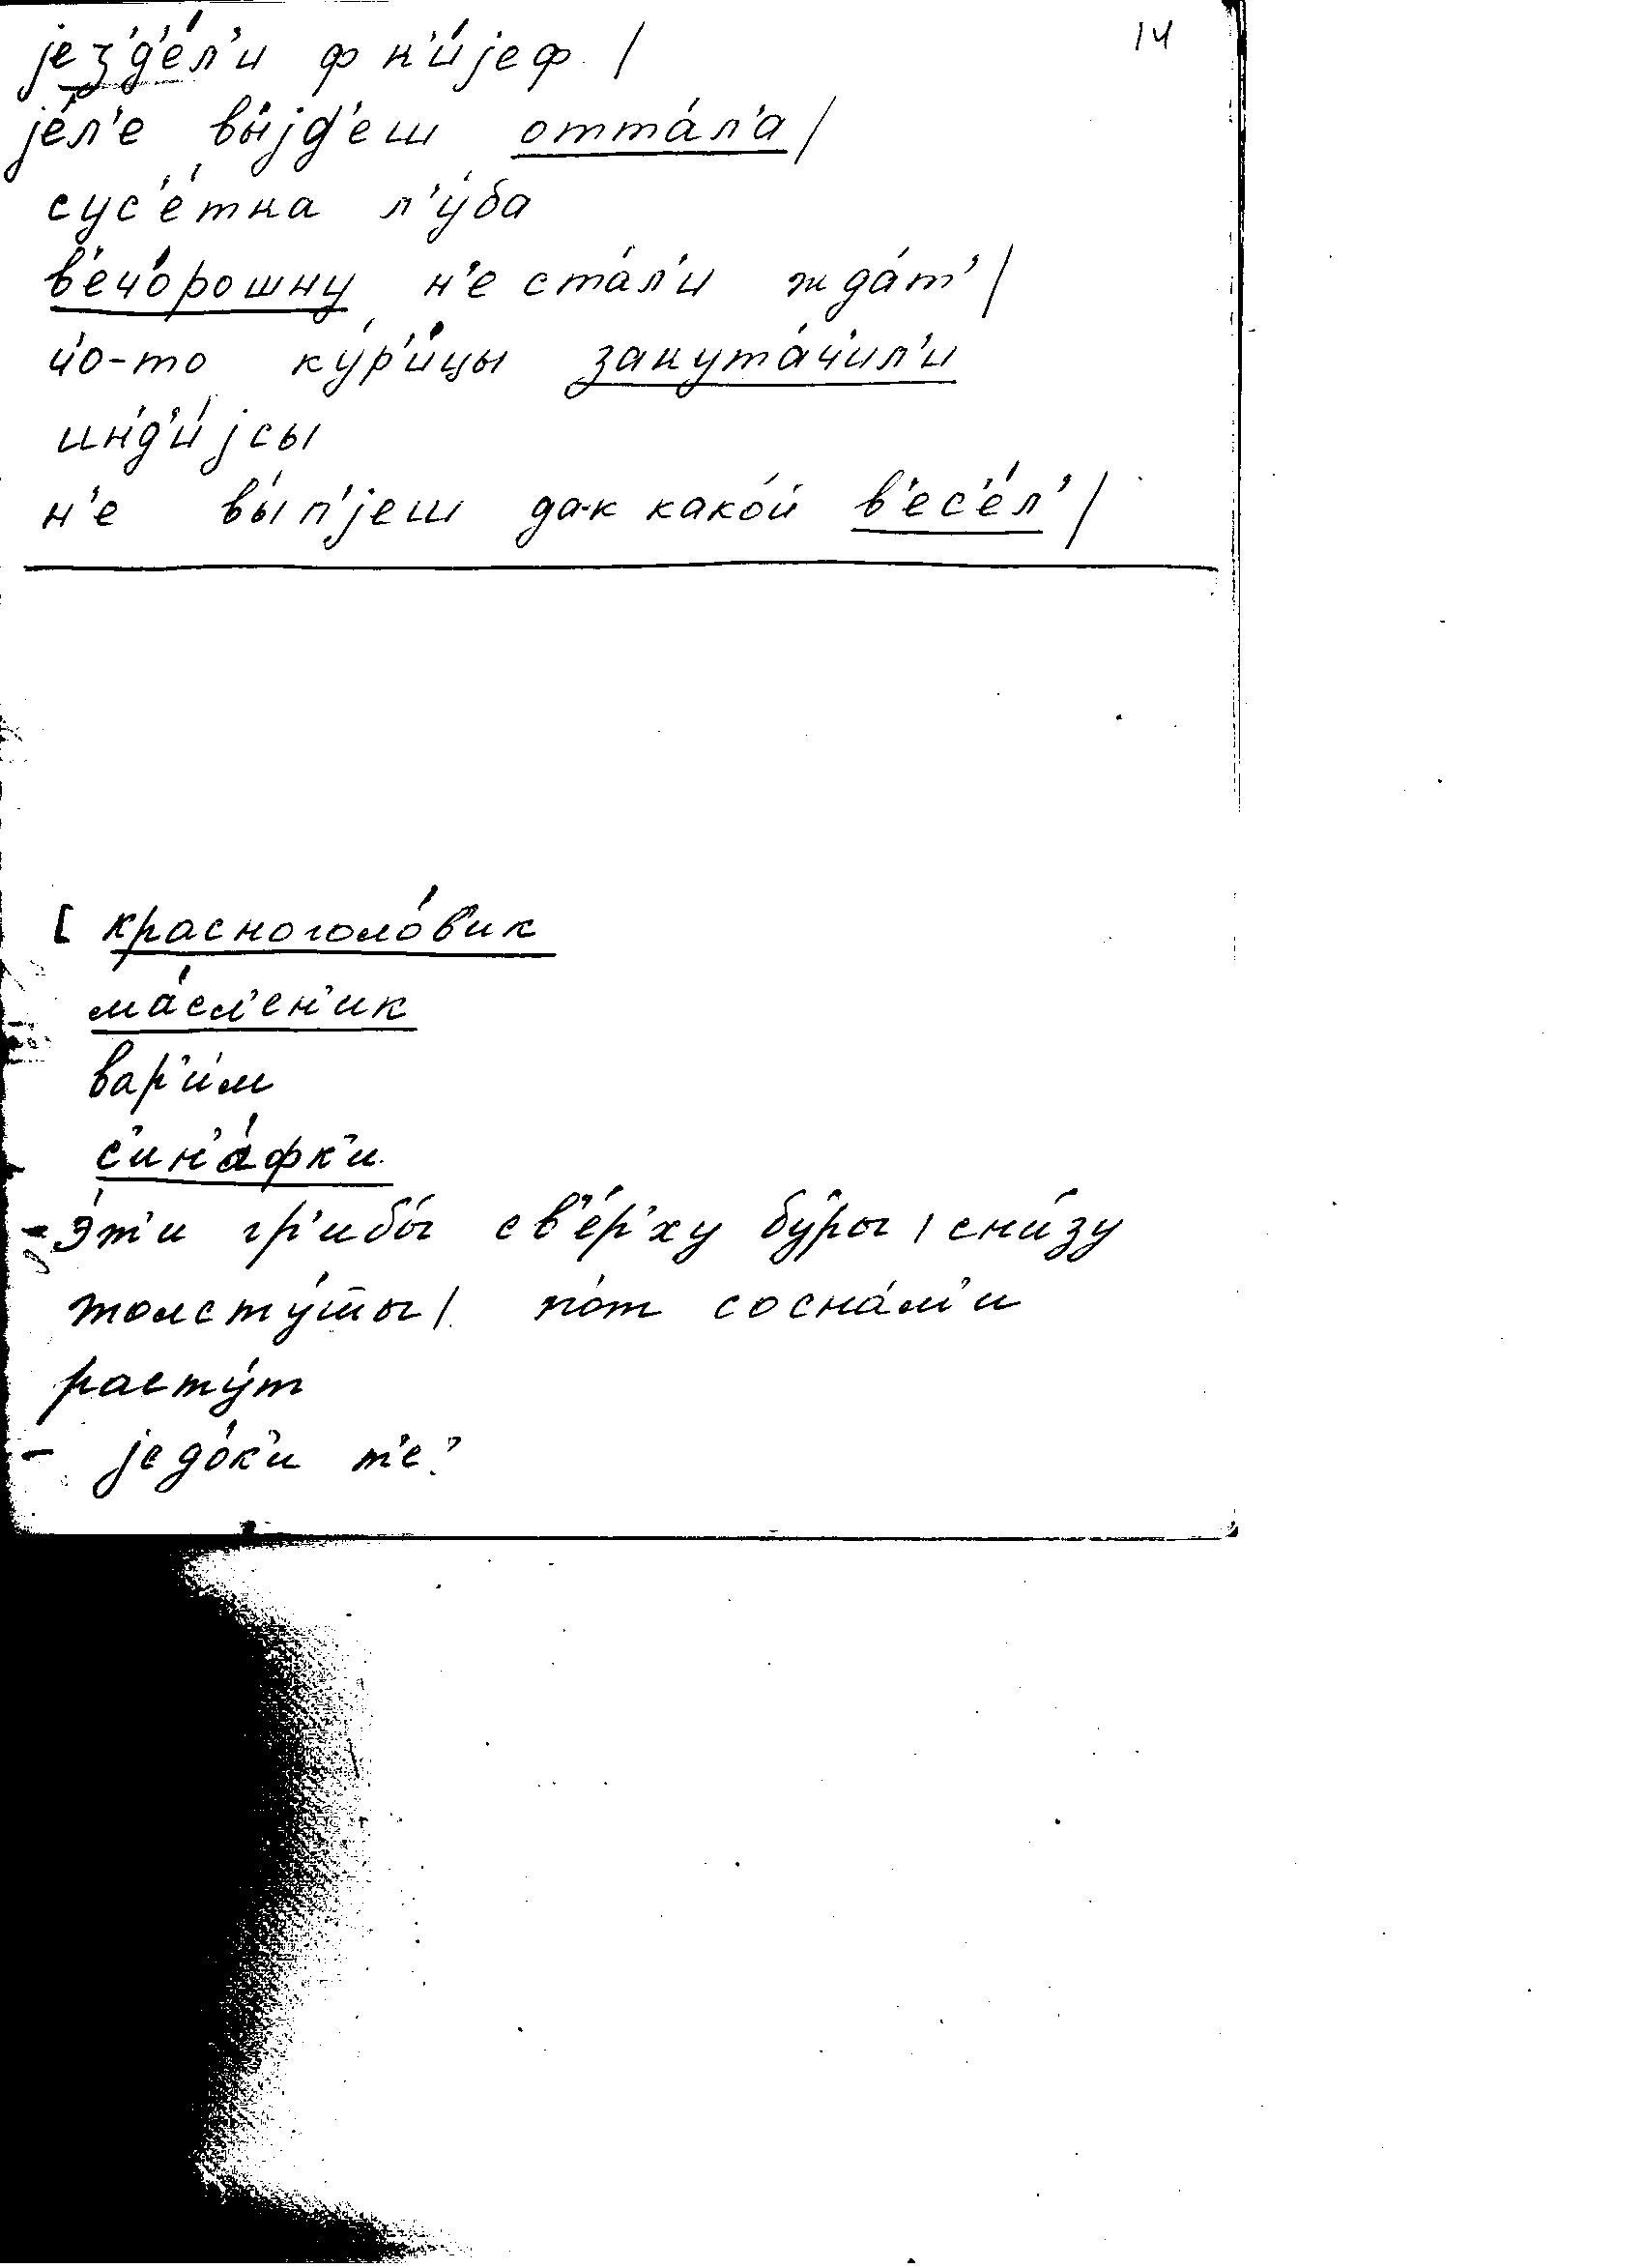 14
јез'д'е́л'и ф к'и́јеф /
је́л'е вы́јд'еш отта́л'а /
сус'е́тка л'у́ба
в'ечо́рошну н'е ста́л'и жда́т' /
ку́р'и́цы закута́ч'ил'и
инд'и́јсы
н'е вы́п'јеш да-к како́й в'ес'е́л' /
[ красноголо́в'ик
ма́сл'ен'ик
вар'и́м
с'ин'а́фк'и
- э́т'и гр'ибы́ св'е́р'ху бу́ры / сни́зу
толсту́шшы / по́т сосна́м'и
расту́т
- једо́к'и т'е?